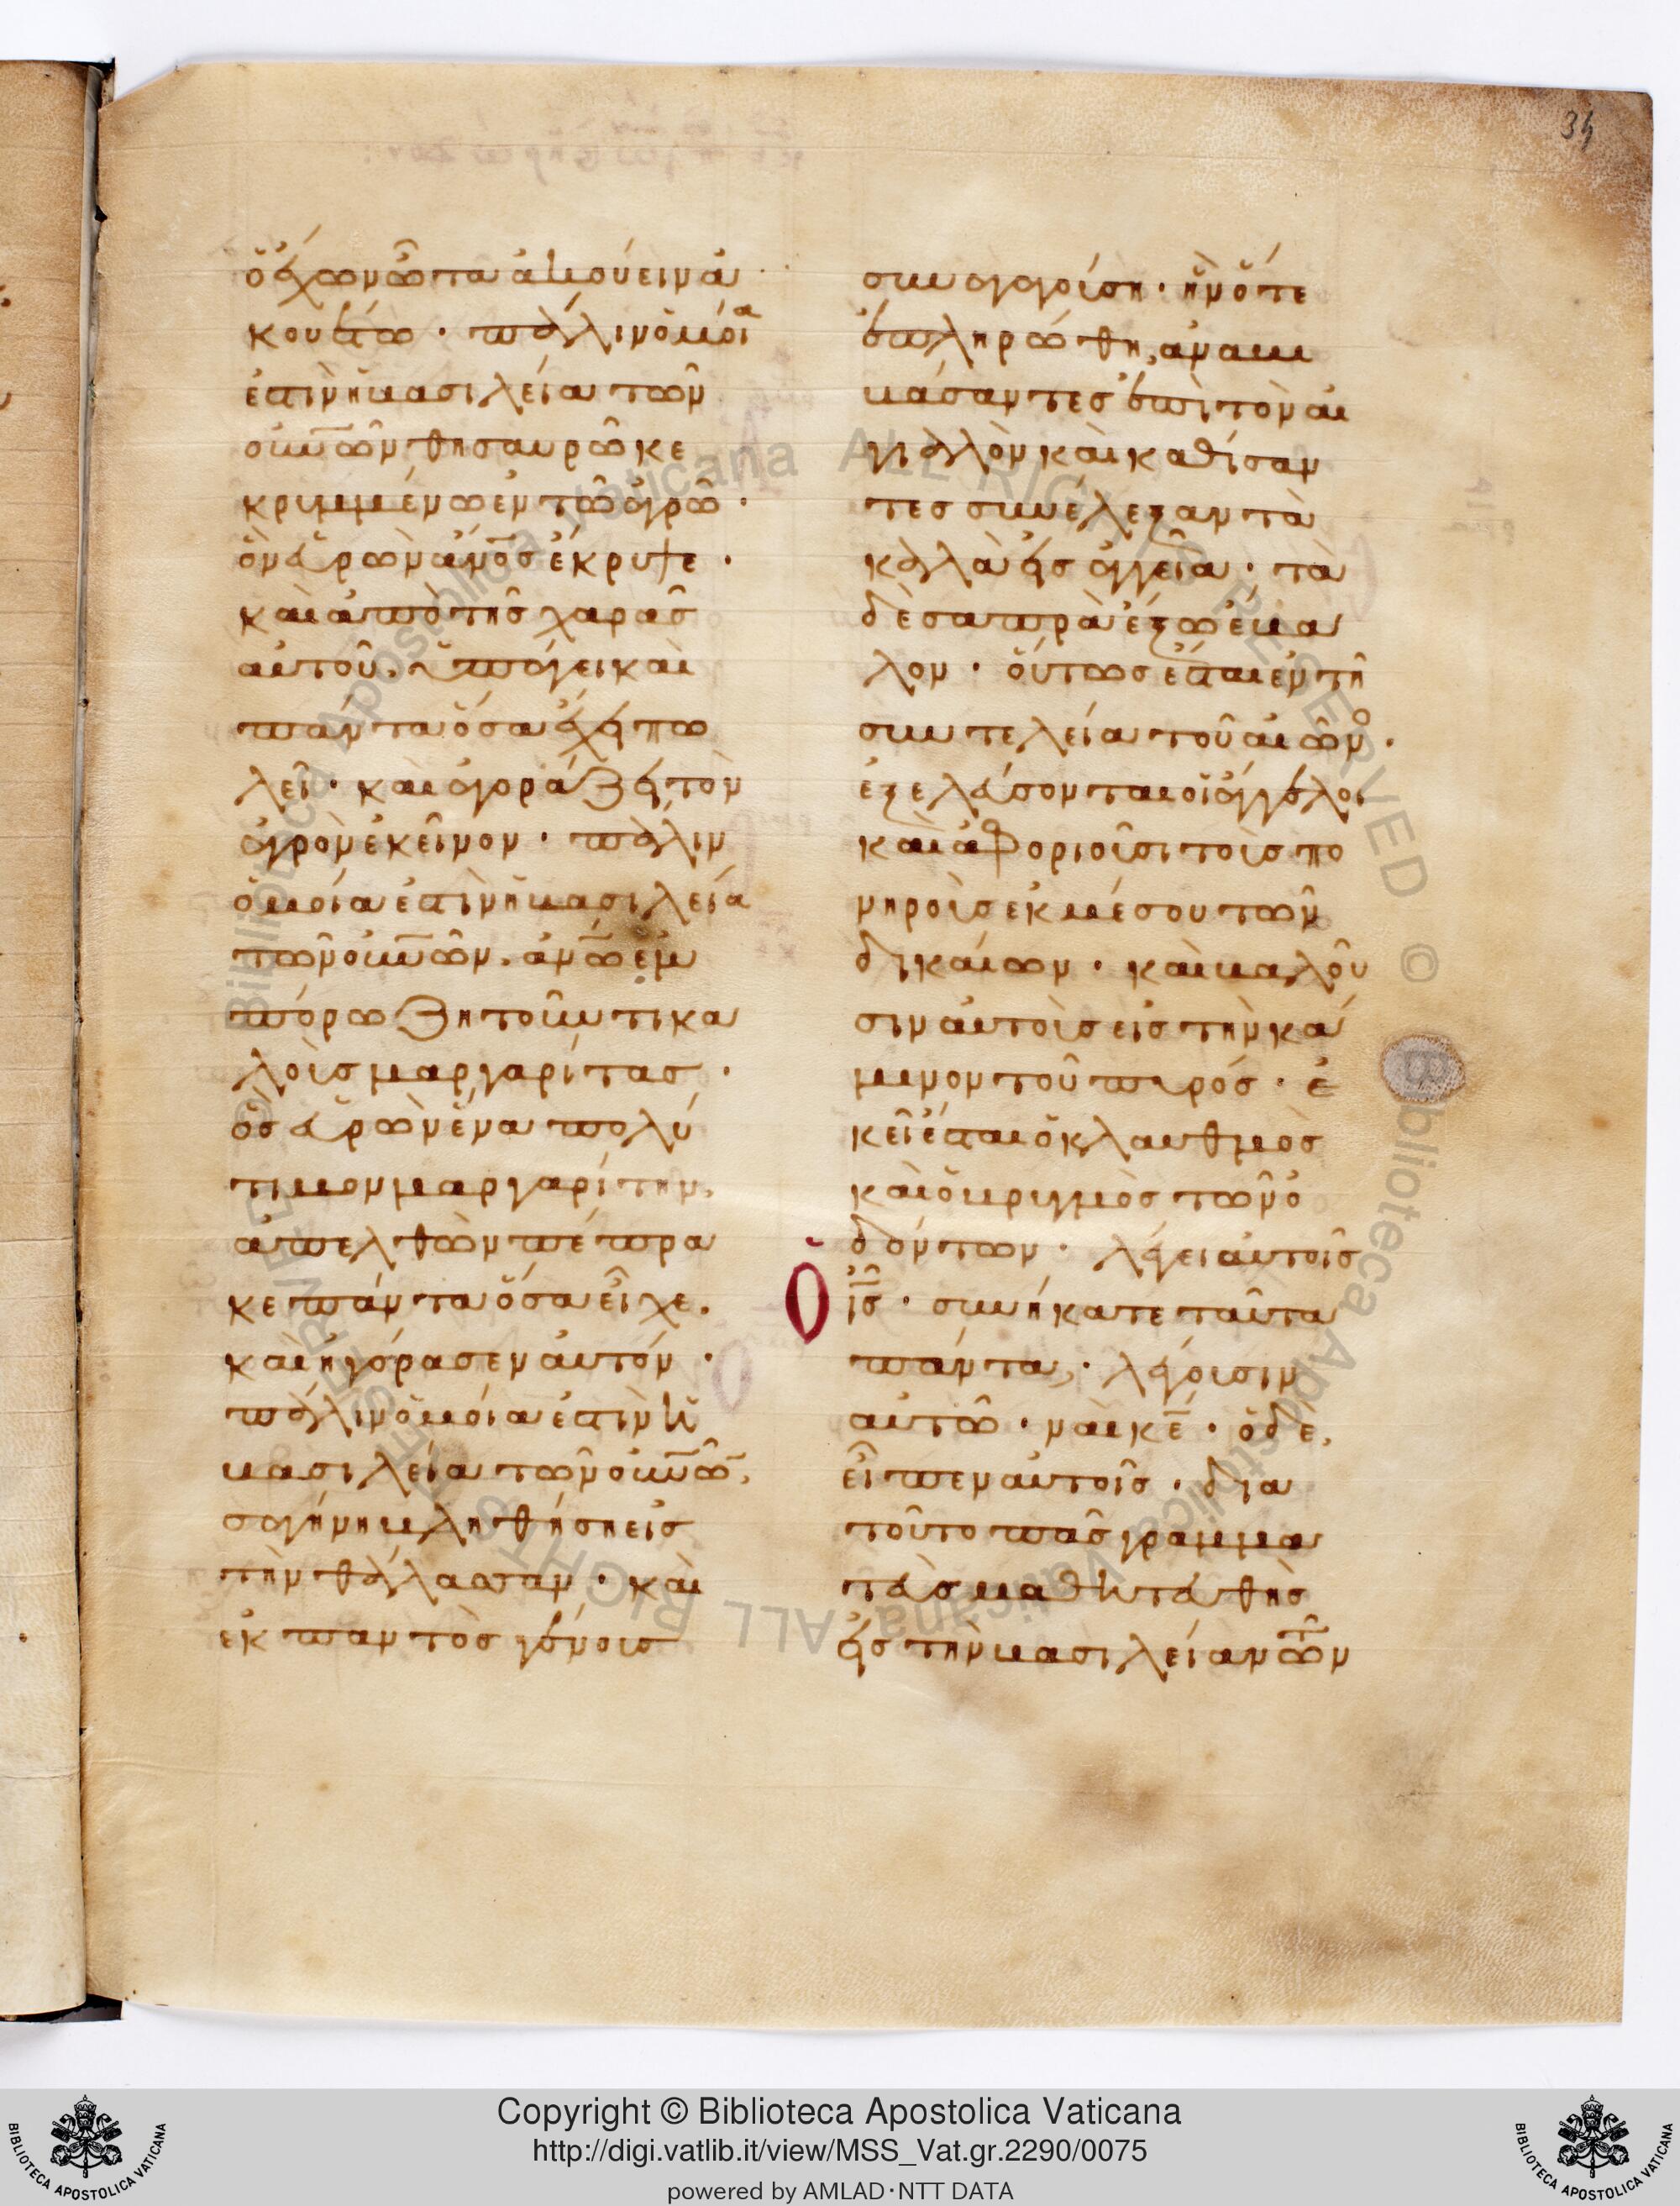 34
ὁ ἔχων ὦτα ἀκούειν ἀ
κουέτω · πάλιν ὁμοί^α
ἐστὶν ἡ βασιλεία τῶν
οὐν͞ῶν θησαυρῶ κε
κρυμμένω ἐν τῶ ἀγρῶ ·
ὃν εὑρὼν ἄν͞ος ἔκρυψε ·
καὶ ἀπὸ τῆς χαρᾶς
αὐτοῦ, ὑπάγει καὶ
πάντα ὅσα ἔχει πω
λεῖ · καὶ ἀγοράζει τὸν
ἀγρὸν ἐκεῖνον · πάλιν
ὁμοία ἐστὶν ἡ βασιλεία
τῶν οὐν͞ῶν. ἀν͞ω ἐμ
πόρω ζητοῦντι κα
λοὺς μαργαρίτας ·
ὃς εὑρὼν ἕνα πολύ
τιμον μαργαρίτην,
ἀπελθὼν πέπρα
κε πάντα ὅσα εἶχε.
καὶ ἠγόρασεν αὐτόν ·
πάλιν ὁμοία ἐστὶν ἡ
βασιλεία τῶν οὐν͞ῶ͞,
σαγήνη βληθείση εἰς
τὴν θάλασσαν · καὶ
ἐκ παντὸς γένους
συναγαγούση · ἣν ὅτε
ἐπληρώθη, ἀναβι
βάσαντες ἐπὶ τὸν αἰ
γιαλὸν καὶ καθίσαν
τες συνέλεξαν τὰ
καλὰ εἰς ἀγγεῖα · τὰ
δὲ σαπρὰ ἔξω ἔβα
λον · οὕτως ἔσται ἐν τῆ
συντελεία τοῦ αἰῶν^ο ·
ἐξελεύσονται οἱ ἄγγελοι
καὶ ἀφοριοῦσι τοὺς πο
νηροὺς ἐκ μέσου τῶν
δικαίων · καὶ βαλοῦ
σιν αὐτοὺς εἰς τὴν κά
μινον τοῦ πυρός · ἐ
κεῖ ἔσται ὁ κλαυθμὸς
καὶ ὁ βρυγμὸς τῶν ὀ
δόντων · λέγει αὐτοῖς
Ὁ ἰ͞ς · συνήκατε ταῦτα
πάντα, · λέγουσιν
αὐτῶ · ναὶ κ͞ε · ὁ δε,
εἶπεν αὐτοῖς · δια
τοῦτο πᾶς γραμμα
τεὺς μαθητευθεὶς
εἰς τὴν βασιλείαν τῶν
Biblioteca Apostolica Vaticana ALL RIGHTS RESERVED ©
Copyright © Biblioteca Apostolica Vaticana
http://digi.vatlib.it/view/MSS_Vat.gr.2290/0075
powered by AMLAD·NTT DATA
BIBLIOTECA APOSTOLICA VATICANA
BIBLIOTECA APOSTOLICA VATICANA